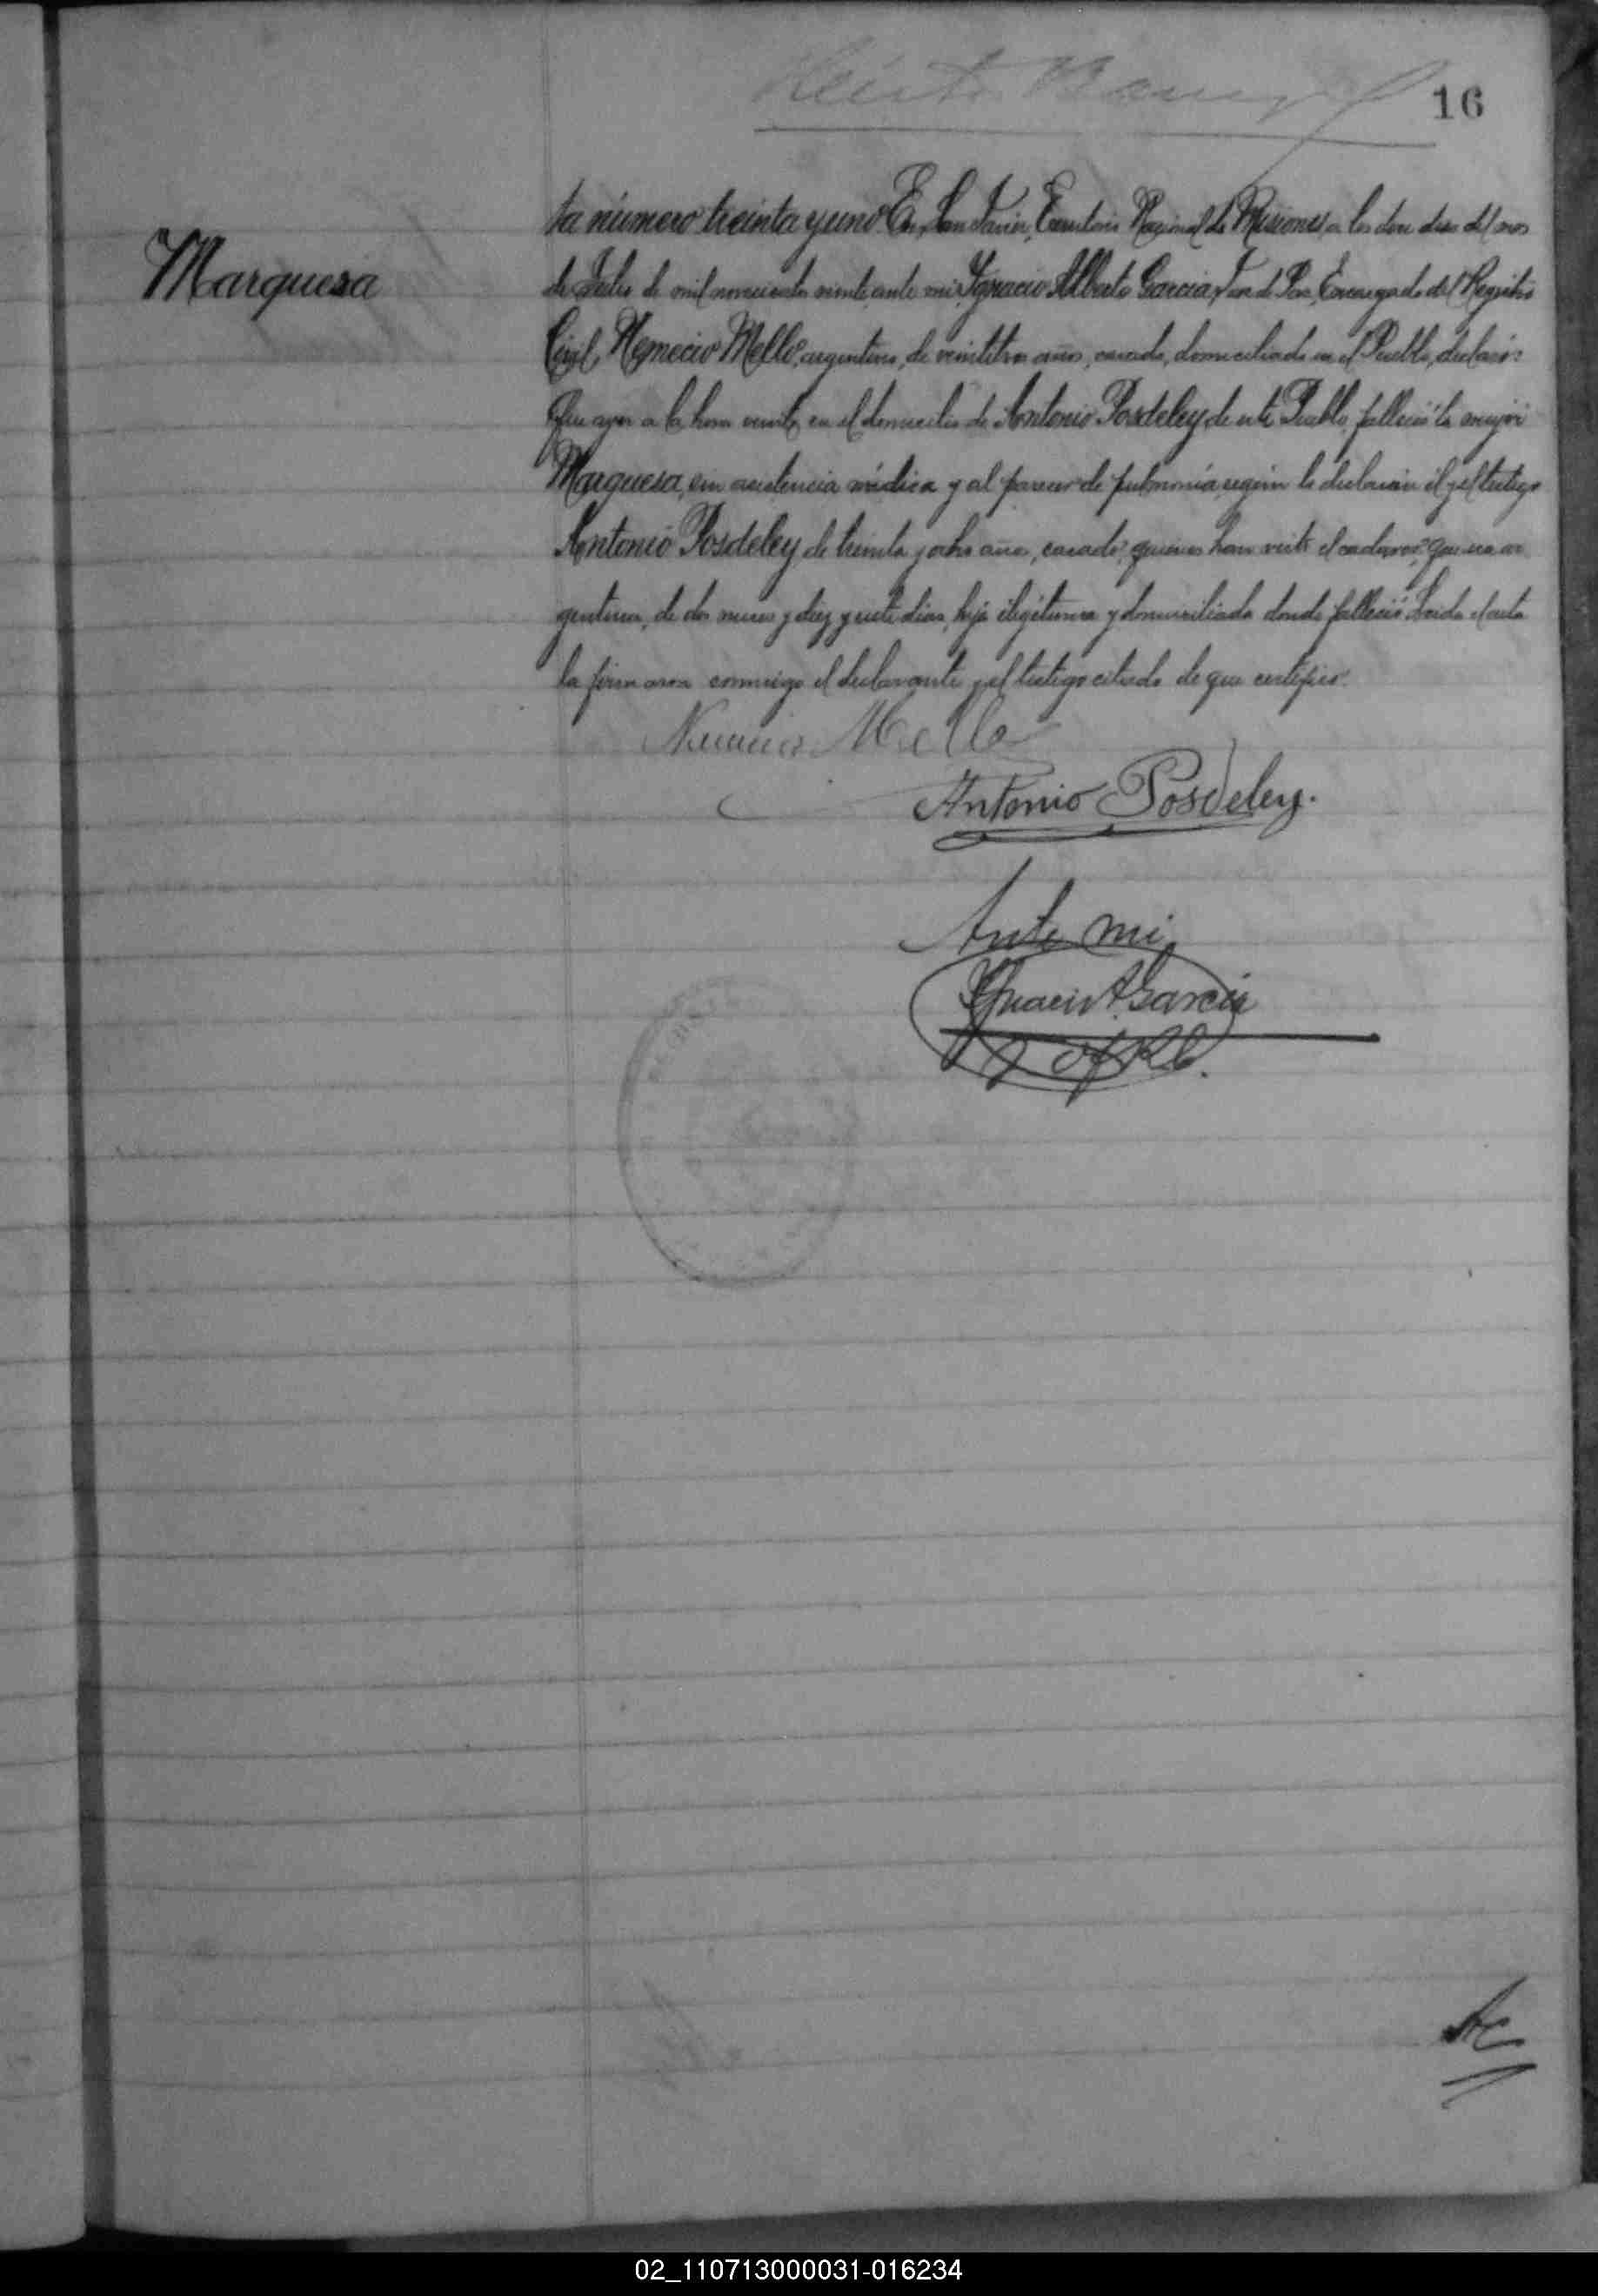 16
Marquesa
ta número treinta y uno En San Javier, Territorio Nacional de Misiones a los doce dias del mes
de Julio de mil novecientos veinte, ante mi Ygnacio Alberto Garcia, Juez de Paz, Encargado del Registro
Civil, Nemecio Mello, argentino, de veintitres años, casado, domiciliado en el Pueblo, declaró:
Que ayer a la hora veinte, en el domicilio de Antonio Posdeley de este Pueblo, falleció la mujer
Marquesa, sin asistencia médica y al parecer de pulmonía, según lo declaran él y el testigo
Antonio Posdeley, de treinta y ocho años, casado, quienes han visto el cadaver; que era ar
gentina, de dos meses y diez y siete dias, hija ilegítima y domiciliada donde falleció. Leida el acta
la firmaron conmigo el declarante y el testigo citado de que certifico.
Mello
Antonio Posdeley.
Ante mi
Ygnacio A. Garcia
02_110713000031-016234